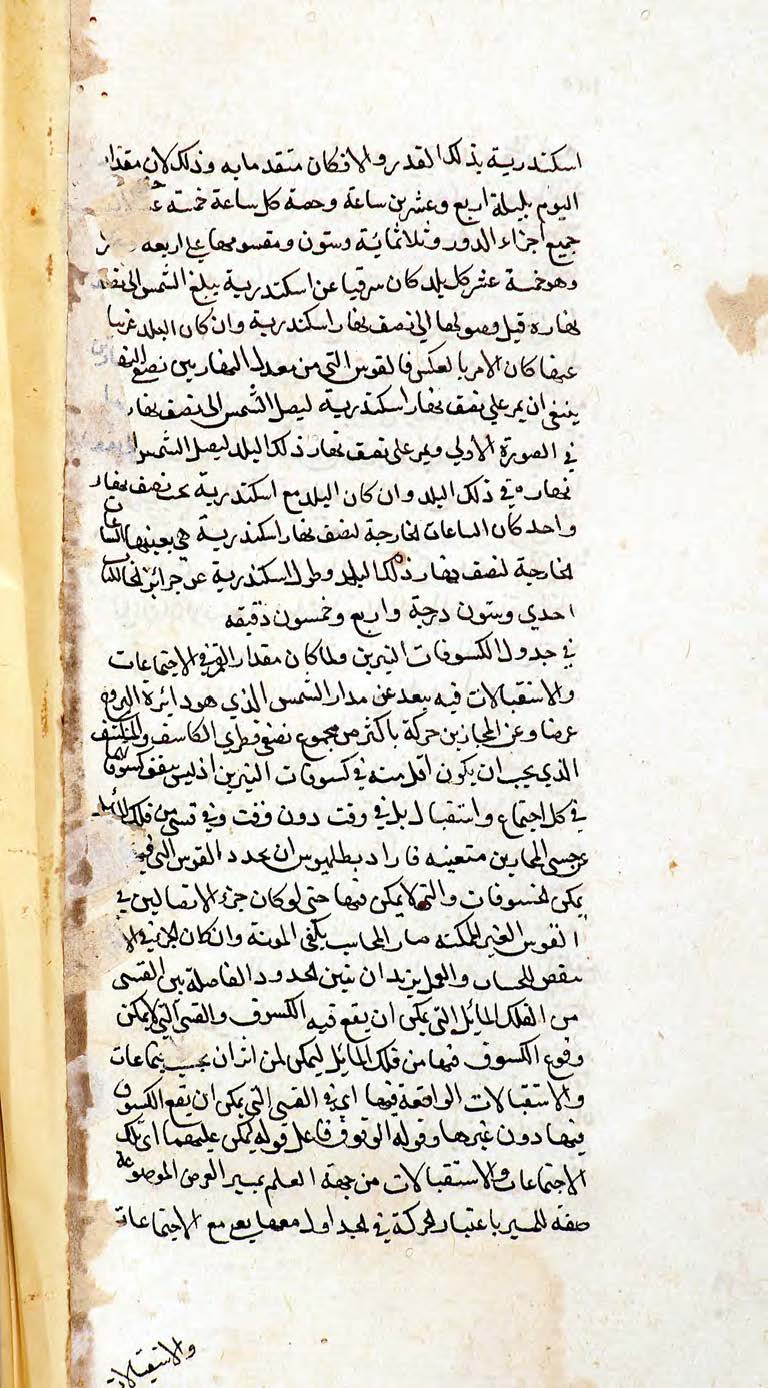 اسكندرية بذلك القدر والا فكان متقدما به وذلك لان مقدار
اليوم بليلة اربع وعشرين ساعة وحصة كل ساعة خمسة
جميع اجزاء الدور وثلاثمائة وستون ومقسومها على اربعه
وهو خمسة عشر كل بلد كان سرقيا عن اسكندرية يبلغ الشمس الى نصف
نهاره قبل وصولها الى نصف نهار اسكندرية وان كان البلد غربيا
عنها كان الامر بالعكس فالقوس التي من معدل النهار بين نصفي النهارين
ينبغي ان يمر على نصف نهار اسكندرية ليصل الشمس الى نصف نهار
في الصورة الاولى ويمر على نصف نهار ذلك البلد ليصل الشمس
نهاره في ذلك البلد وان كان البلد مع اسكندرية تحت نصف نهار
واحد كان الساعات الخارجة لنصف نهار اسكندرية هي بعينها الساعات
الخارجة لنصف نهار ذلك البلد وطول اسكندرية عن جزائر الخالدات
احدي وستون درجة واربع وخمسون دقيقه
في جدول الكسوفات النيرين ولما كان مقدار القمر في الاجتماعات
والاستقبالات فيه بعد عن مدار الشمس الذي هو دائرة البروج
عرضا وعن المجازين حركة باكثر من مجموع نصفي قطري الكاسف والمنكسف
الذي يجب ان يكون اقل منه في كسوفات النيرين اذ ليس يتفق كسوفاتها
في كل اجتماع واستقبال بل في وقت دون وقت وفي قسي من فلك المائل
عن جنبي المجازين متعينه فاراد بطلميوس ان يحدد القوس التي فيها
يمكن الخسوفات والتي لا يمكن فيها حتى لو كان جزء الاتصالين في
القوس الغير الممكنة صار الحاسب يكفي المونة وان كان الجزء في الا
نقص للحساب والعمل يريد ان نبين الحدود الفاصلة بين القسي
من الفلك المايل التي يمكن ان يقع فيه الكسوف والقسي التي لا يمكن
وقوع الكسوف فيها من فلك المايل ليمكن لمن اثر ان يحسب اجتماعات
والاستقبالات الواقعة فيها اي في القسي التي يمكن ان يقع الكسوف
فيها دون غيرها وقوله الوقوف فاعل قوله يمكن عليهما اي تلك
الاجتماعات والاستقبالات من جهة العلم بمسير العرض الموضوعة
صفة للمسير باعتبار الحركة في الجداول معها يعني مع الاجتماعات
والاستقبالات